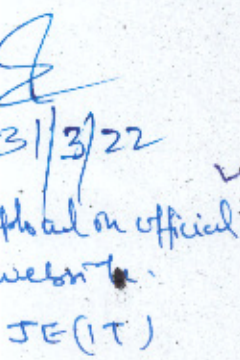 31/3/22
upload on official
website.
JE(IT)